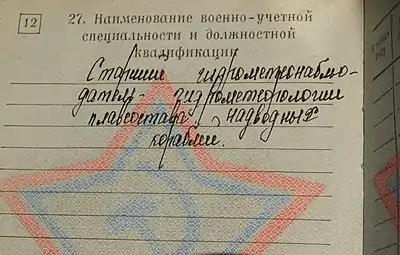 12
27. Наименование военно-учетной
специальности и должностной
квалификации
Старший гидрометнаблю-
датель- гидрометеорологии
плавсостава надводных
кораблей.